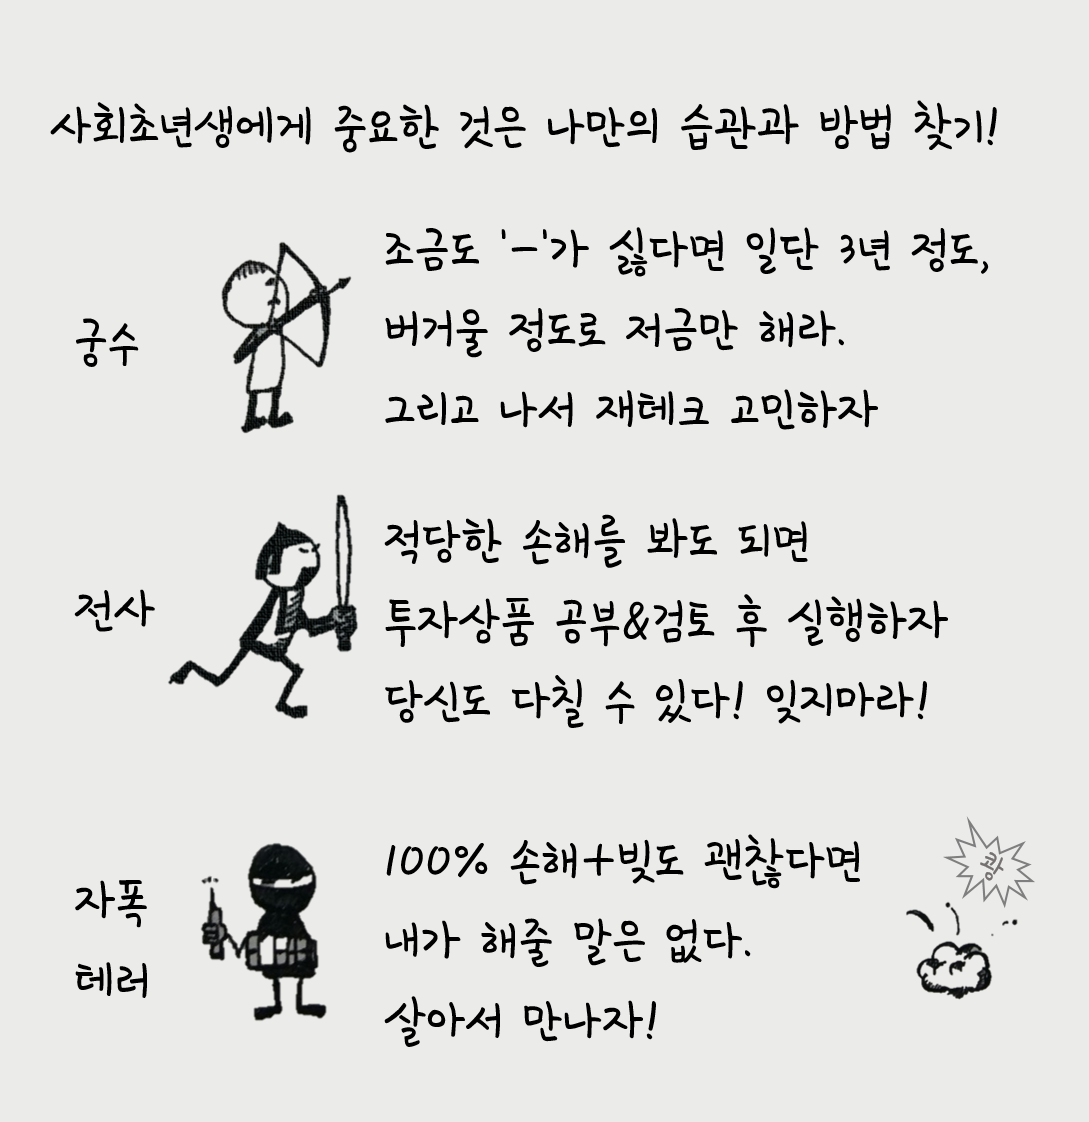 사회초년생에게 중요한 것은 나만의 습관과 방법 찾기!
궁수
조금도 '-'가 싫다면 일단 3년 정도,
버거울 정도로 저금만 해라.
그리고 나서 재테크 고민하자
전사
적당한 손해를 봐도 되면
투자상품 공부&검토 후 실행하자
당신도 다칠 수 있다! 잊지마라!
자폭
테러
100% 손해+빚도 괜찮다면
내가 해줄 말은 없다.
살아서 만나자!
쾅